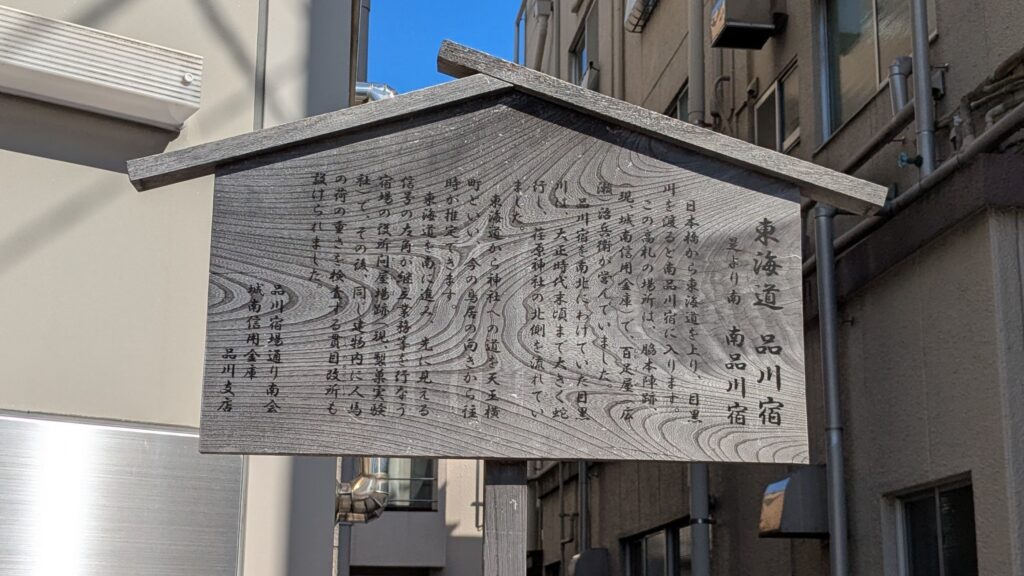 東海道 品川宿
是より南 南品川宿
日本橋から東海道を上り、目黒
川を渡ると南品川宿に入ります。
この高札の場所は、脇本陣跡、
（現、城南信用金庫）で、百足屋、広
瀬 治兵衛が営んでいました。
品川宿を南北にわけていた目黒
川は、大正時代末頃まで大きく蛇
行し、荏原神社の北側を流れてい
ました。
東海道から神社への道を天王横
町といい、今の鳥居の向きから往
時が推定できます。
東海道を南に進み、先に見える
信号の左角が継立業務等を行なう
宿場の役所問屋場跡（現、梨菓実験
社）で、その後、同じ建物内に人馬
の荷の重さを検査する貫目改所も
設けられました。
品川宿場通り南会
城南信用金庫
品川支店